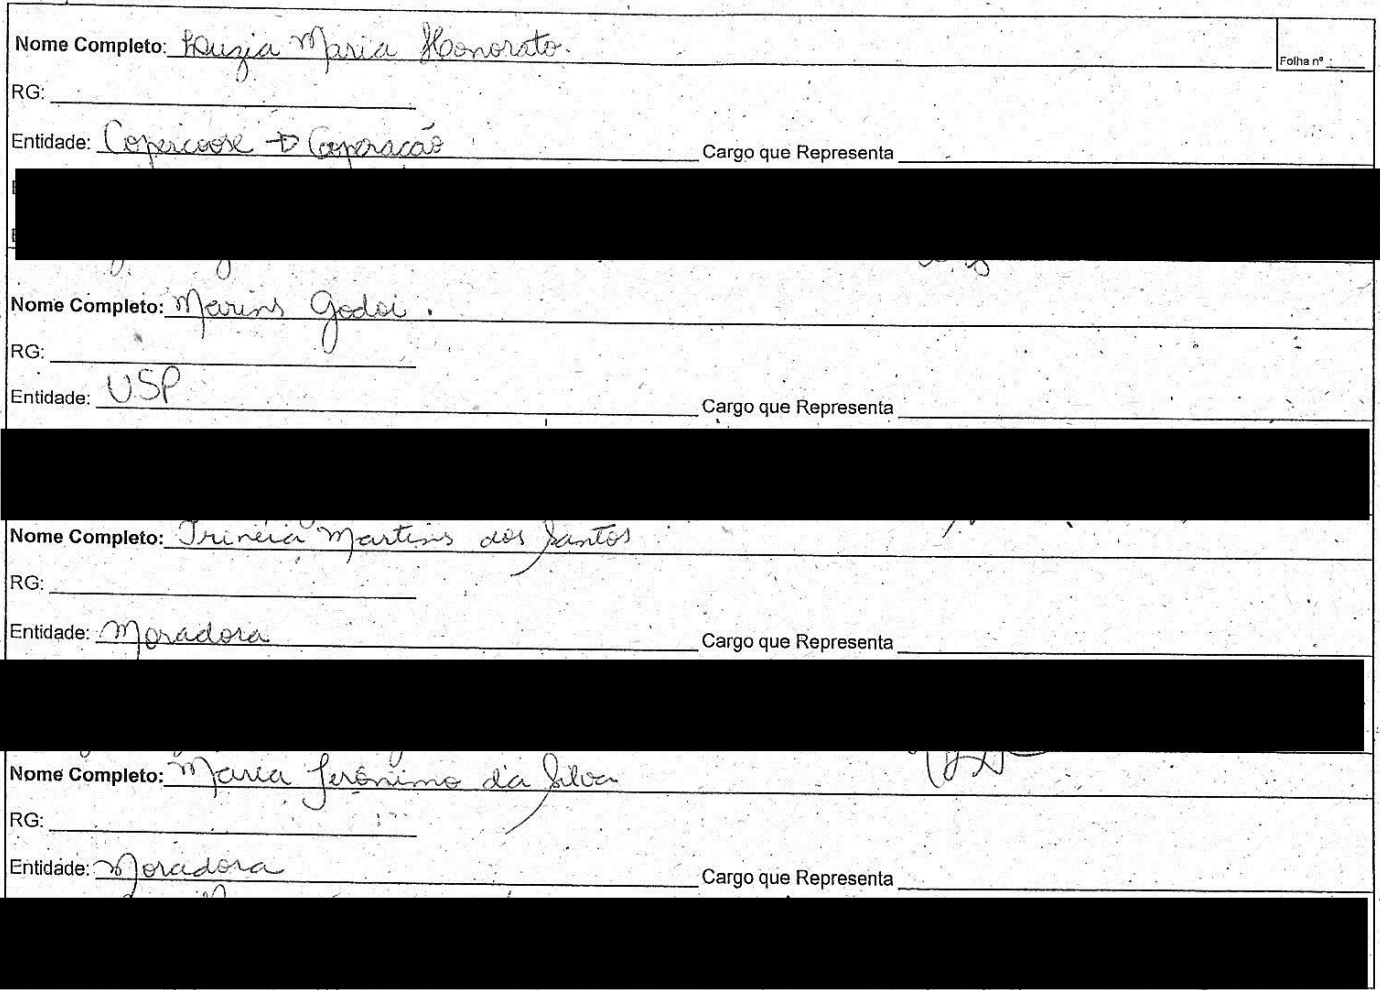 Nome Completo: Luzia Maria Honorato.
Folha nº
RG:
Entidade: Copercose → Coperacão Cargo que Representa
Nome Completo: Marins Godoi.
RG:
Entidade: USP Cargo que Representa
Nome Completo: Irineia Martins dos Santos
RG:
Entidade: Moradora Cargo que Representa
Nome Completo: Maria Jerônimo da Silva
RG:
Entidade: Moradora Cargo que Representa